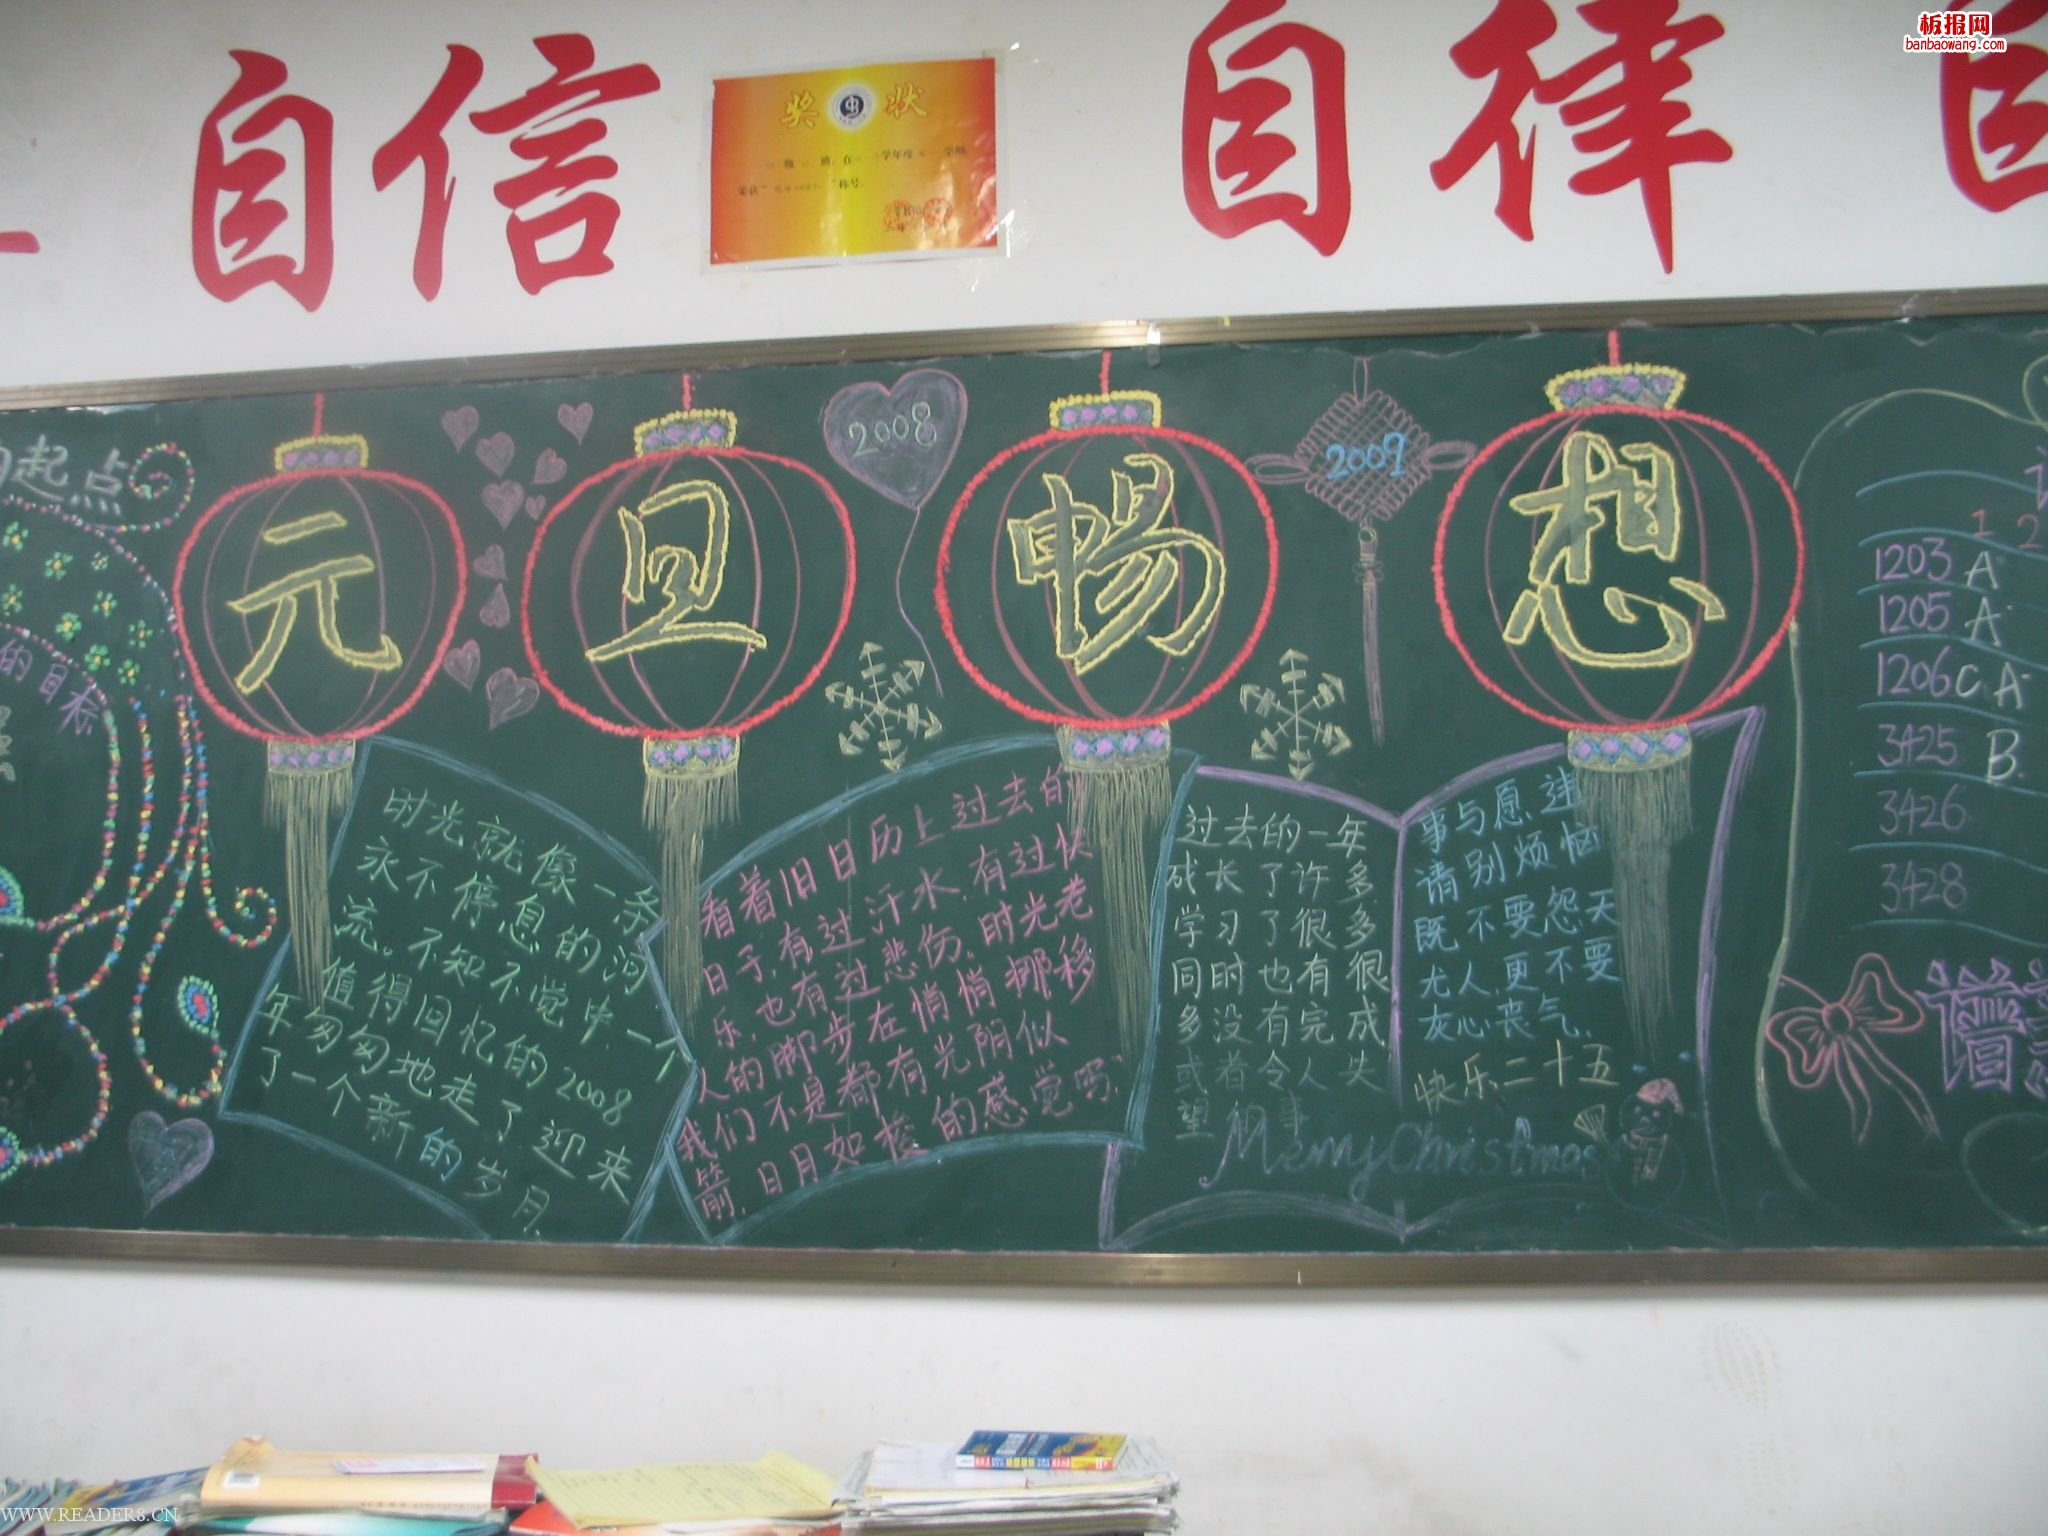 板报网
banbaowang.com
自信
自律
奖状
级 班,在 学年度 学期,
荣获" "称号。
起点
的目标
元旦畅想
2008
2009
时光就像一条
永不停息的河
流。不知不觉中,一个
值得回忆的2008
年匆匆地走了,迎来
了一个新的岁月,
看着旧日历上过去的
日子,有过汗水,有过快
乐,也有过悲伤,时光老
人的脚步在悄悄挪移
我们不是都有光阴似
箭,日月如梭的感觉吗,
过去的一年
成长了许多
学习了很多
同时也有很
多没有完成
或者令人失
望的事
事与愿违
请别烦恼
既不要怨天
尤人,更不要
灰心丧气,
快乐二十五
Merry Christmas
1 2
1203 A
1205 A
1206 C A
3425 B
3426
3428
WWW.READER8.CN